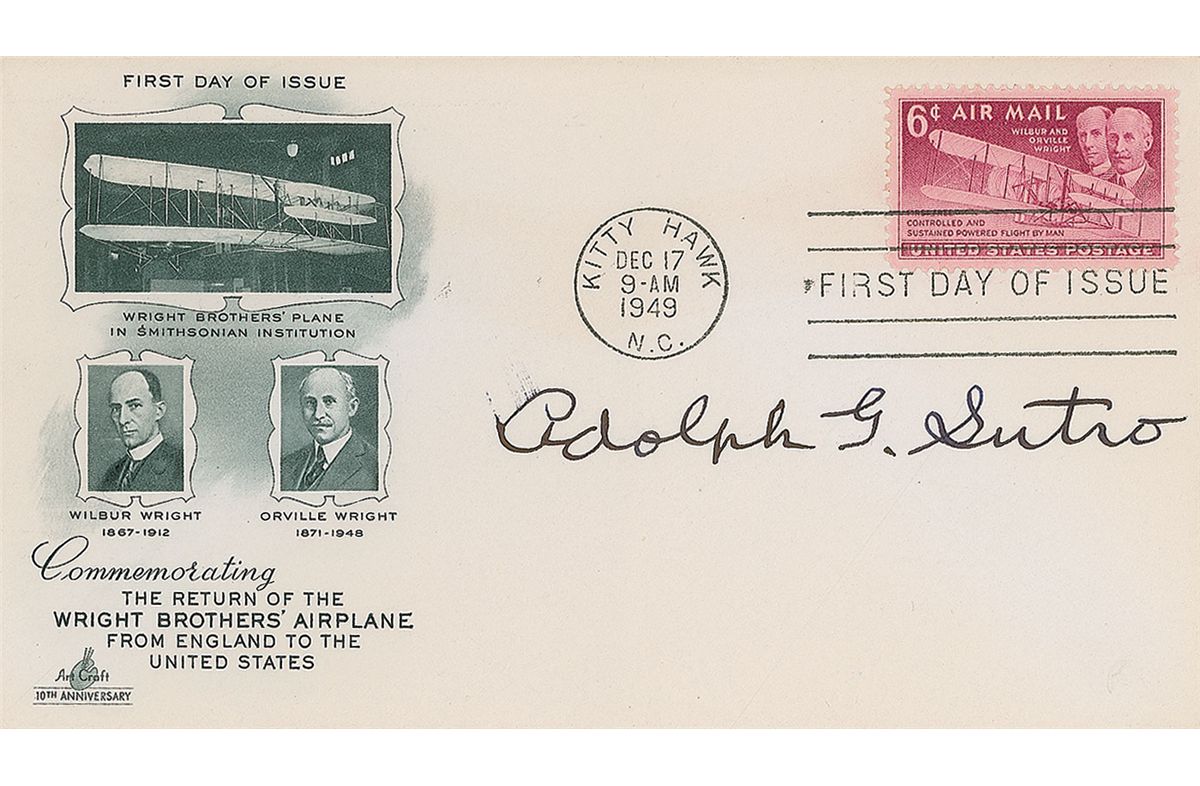 FIRST DAY OF ISSUE
WRIGHT BROTHERS' PLANE
IN SMITHSONIAN INSTITUTION
WILBUR WRIGHT
1867-1912
ORVILLE WRIGHT
1871-1948
Commemorating
THE RETURN OF THE
WRIGHT BROTHERS' AIRPLANE
FROM ENGLAND TO THE
UNITED STATES
Art Craft
10TH ANNIVERSARY
KITTY HAWK
DEC 17
9-AM
1949
N.C.
6¢ AIR MAIL
WILBUR AND
ORVILLE
WRIGHT
CONTROLLED AND
SUSTAINED POWERED FLIGHT BY MAN
UNITED STATES POSTAGE
FIRST DAY OF ISSUE
Adolph G. Sutro